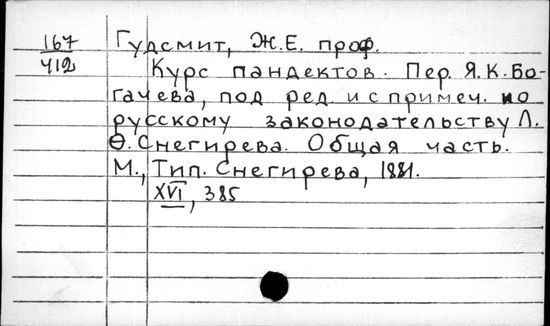 167 Гудсмит, Ж.Е. проф.
412 Курс пандектов. Пер. Я.К.Бо-
гачева, под ред. и с примеч. по
русскому законодательству Л.
Ѳ.Снегирева. Общая часть.
М., Тип. Снегирева, 1881.
XVI, 385